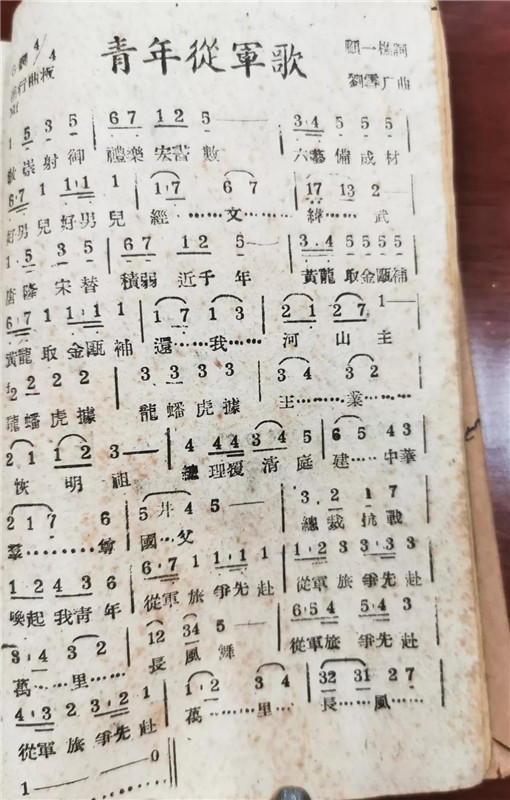 青年從軍歌
4/4
顧一樵詞
行曲板
劉雪厂曲
1 5 3 5 | 6 7 1 2 5 — | 3·4 5 5 5
崇射御 禮樂宏書數 六藝備成材
6·7 1 1·1 1 | 1·7 6 7 | 17 13 2 —
好男兒好男兒 經……文……緯……武
1·5 3 5 | 6 7 1 2 5 — | 3·4 5 5 5 5
唐隆宋替 積弱近千年 黃龍取金甌補
6·7 1 1·1 1 | 1 7 1 3 | 2 1 2 7 1 —
黃龍取金甌補 還……我……河山主
2 2 2 2 | 3 3 3 3 | 3 4 3 2
龍蟠虎據 龍蟠虎據 王……業……
2 1 1 2 3 — | 4 4 4 3 4 5 | 6 5 4 3
恢明祖 總理覆清庭 建……中華
2 1 7 6 | 5 #4 5 — | 3·2 1 7
羣……尊 國父 總裁抗戰
1 2 4 3 6 | 6·7 1 1·1 1 | 1·2 3 3·3 3
喚起我青年 從軍旅爭先赴 從軍旅爭先赴
3·4 3 2 | 12 34 5 — | 6·5 4 5·4 3
萬……里……長風舞 從軍旅爭先赴
4·3 2 3·2 1 | 1·2 3 4 | 32 31 2 7
從軍旅爭先赴 萬……里……長……風……
1 — — 0